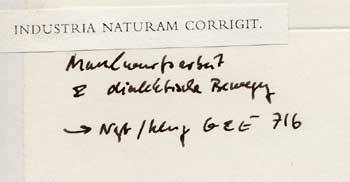 INDUSTRIA NATURAM CORRIGIT.
Maulwurfsarbeit
& dialektische Bewegg
→ Ngt/Kluge G&E 716